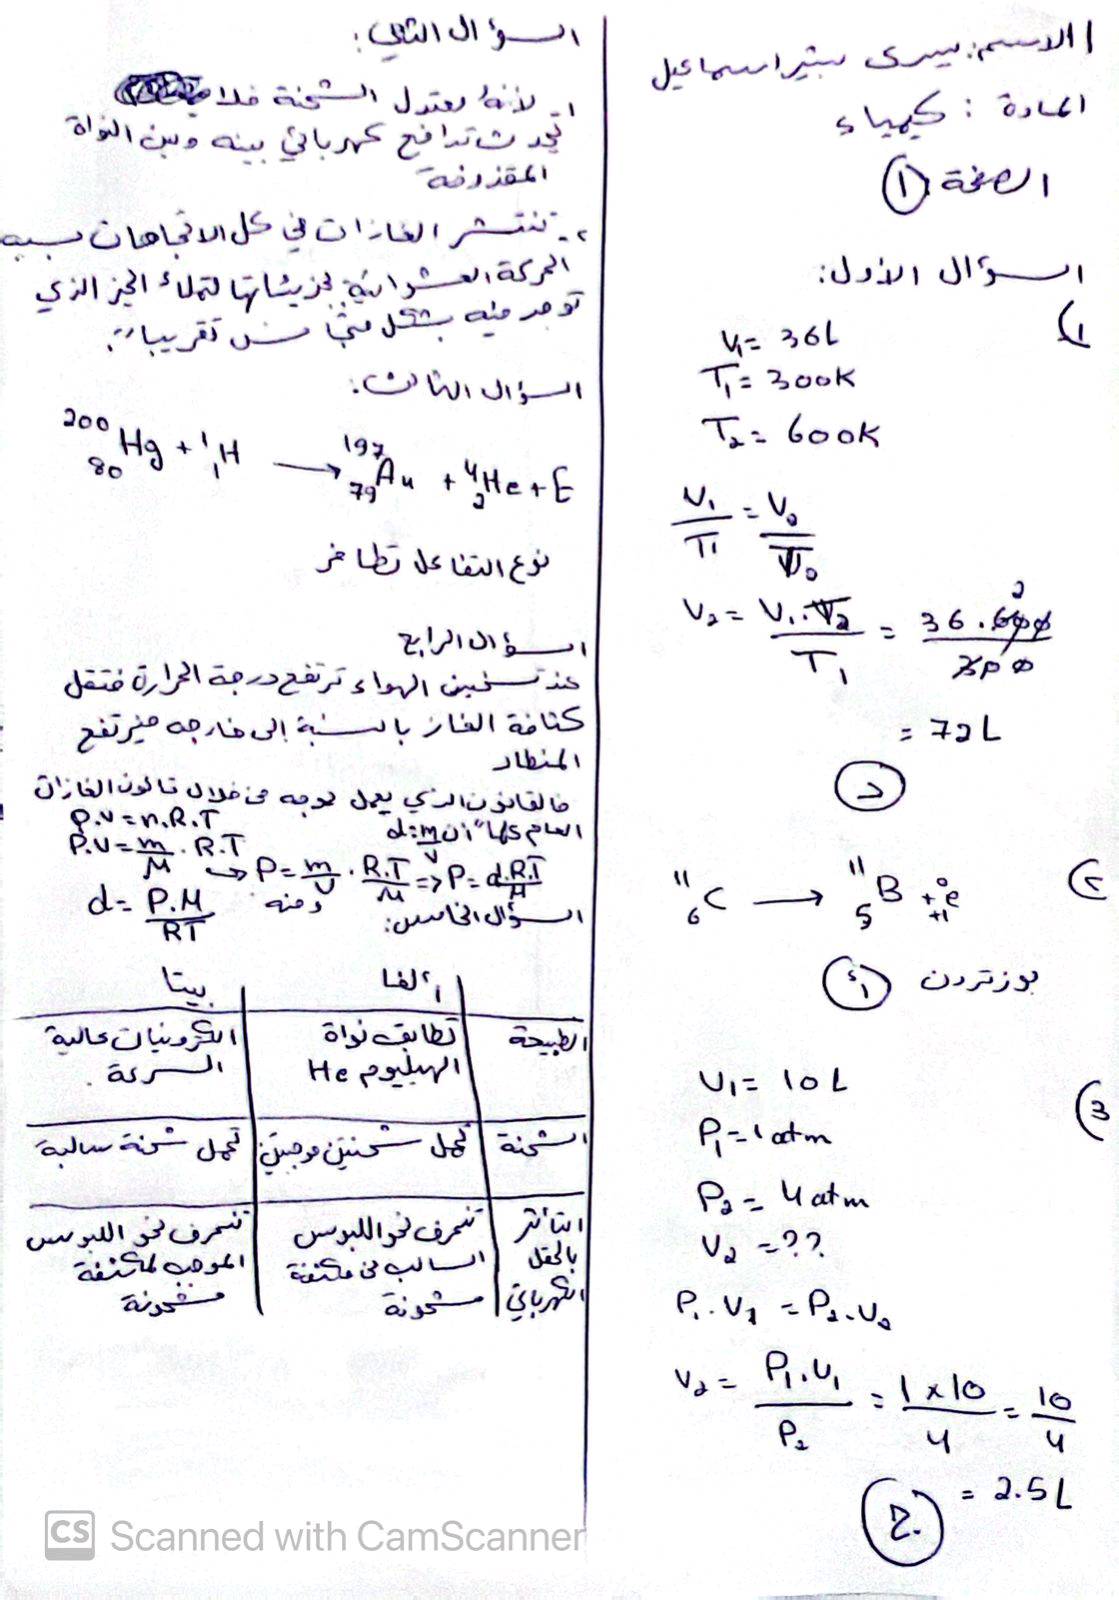 الاسم: يسرى بشير اسماعيل
المادة: كيمياء
الصفحة: ١
السؤال الأول:
1)
V₁ = 36L
T₁ = 300K
T₂ = 600K
V₁/T₁ = V₂/T₂
V₂ = V₁.T₂/T₁ = 36.600/300
2
= 72L
د
٢)
¹¹₆C → ¹¹₅B + ⁰₊₁e
بوزترون أ
3)
V₁ = 10L
P₁ = 1atm
P₂ = 4atm
V₂ = ??
P₁.V₁ = P₂.V₂
V₂ = P₁.V₁/P₂ = 1 x 10/4 = 10/4
= 2.5L
ج.
السؤال الثاني:
1- لأنه معتدل الشحنة فلا
يحدث تدافع كهربائي بينه وبين النواة
المقذوفة
٢- تنتشر الغازات في كل الاتجاهات بسبب
الحركة العشوائية لجزيئاتها لتملاء الحيز الذي
توجد فيه بشكل متجانس تقريباً.
السؤال الثالث:
²⁰⁰₈₀Hg + ¹₁H → ¹⁹⁷₇₉Au + ⁴₂He + E
نوع التفاعل تطافر
السؤال الرابع
عند تسخين الهواء ترتفع درجة الحرارة فتقل
كثافة الغاز بالنسبة إلى خارجه فيرتفع
المنطاد
فالقانون الذي يعمل بموجبه من خلال قانون الغازات
العام كما أن d = m/V
P.V = n.R.T
P.V = m/M . R.T
P = m/V . R.T/M => P = d.R.T/M
ومنه d = P.M/RT
السؤال الخامس:
ألفا بيتا
الطبيعة تطابق نواة الكترونيات عالية
الهيليوم He السرعة.
الشحنة تحمل شحنتين موجبتين تحمل شحنة سالبة
التأثر تنحرف نحو اللبوس تنحرف نحو اللبوس
بالحقل السالب في مكثفة الموجب لمكثفة
الكهربائي مشحونة مشحونة
CS Scanned with CamScanner